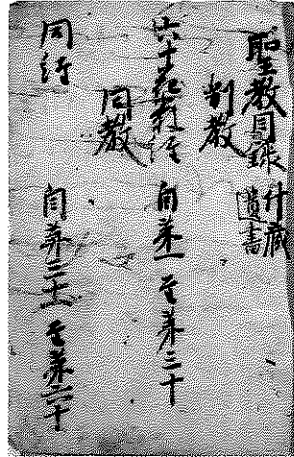 聖教目録 什藏
遺書
教
六十 自第一至第三十
同教
同経 自第三十一至第六十